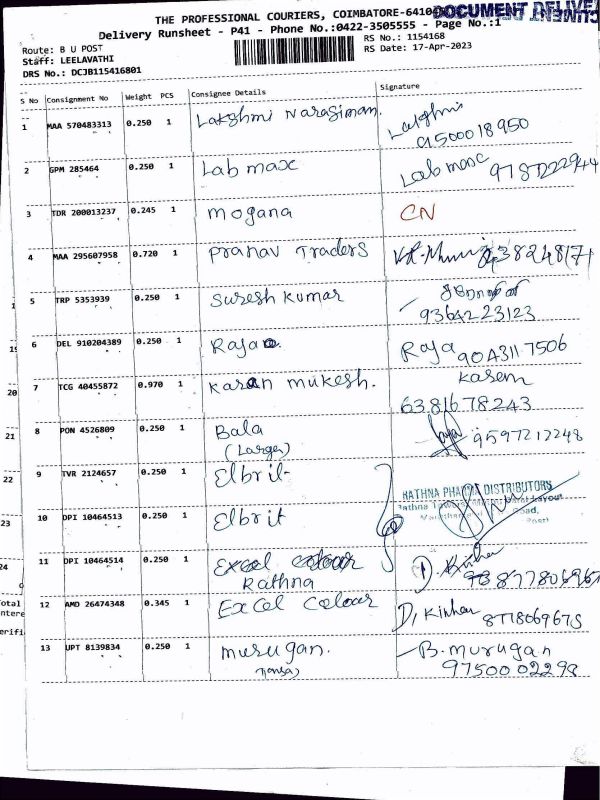 THE PROFESSIONAL COURIERS, COIMBATORE-641045
DOCUMENT DELIVE
Delivery Runsheet - P41 - Phone No.:0422-3505555 - Page No.:1
Route: B U POST
Staff: LEELAVATHI
DRS No.: DCJB115416801
RS No.: 1154168
RS Date: 17-Apr-2023
S No Consignment No Weight PCS Consignee Details Signature
1 MAA 570483313 0.250 1 Lakshmi Narasiman. Lakshmi
9500018950
2 GPM 285464 0.250 1 Lab max Lab max
3 TDR 200013237 0.245 1 mogana CN
4 MAA 295607958 0.720 1 Pranav Traders
5 TRP 5353939 0.250 1 Suresh kumar
9364223123
6 DEL 910204389 0.250 1 Raja Raja 9043117506
7 TCG 40455872 0.970 1 Karan mukesh. Kasem
6381678243
8 PON 4526809 0.250 1 Bala 9597212248
(Large)
9 TVR 2124657 0.250 1 Elbril-
RATHNA PHARMA DISTRIBUTORS
10 DPI 10464513 0.250 1 Elbrit
Road,
11 DPI 10464514 0.250 1 Excel colour
Rathna
12 AMD 26474348 0.345 1 Excel Colour D, Kinhar
13 UPT 8139834 0.250 1 murugan. B. murugan
9750002293
20
21
22
23
24